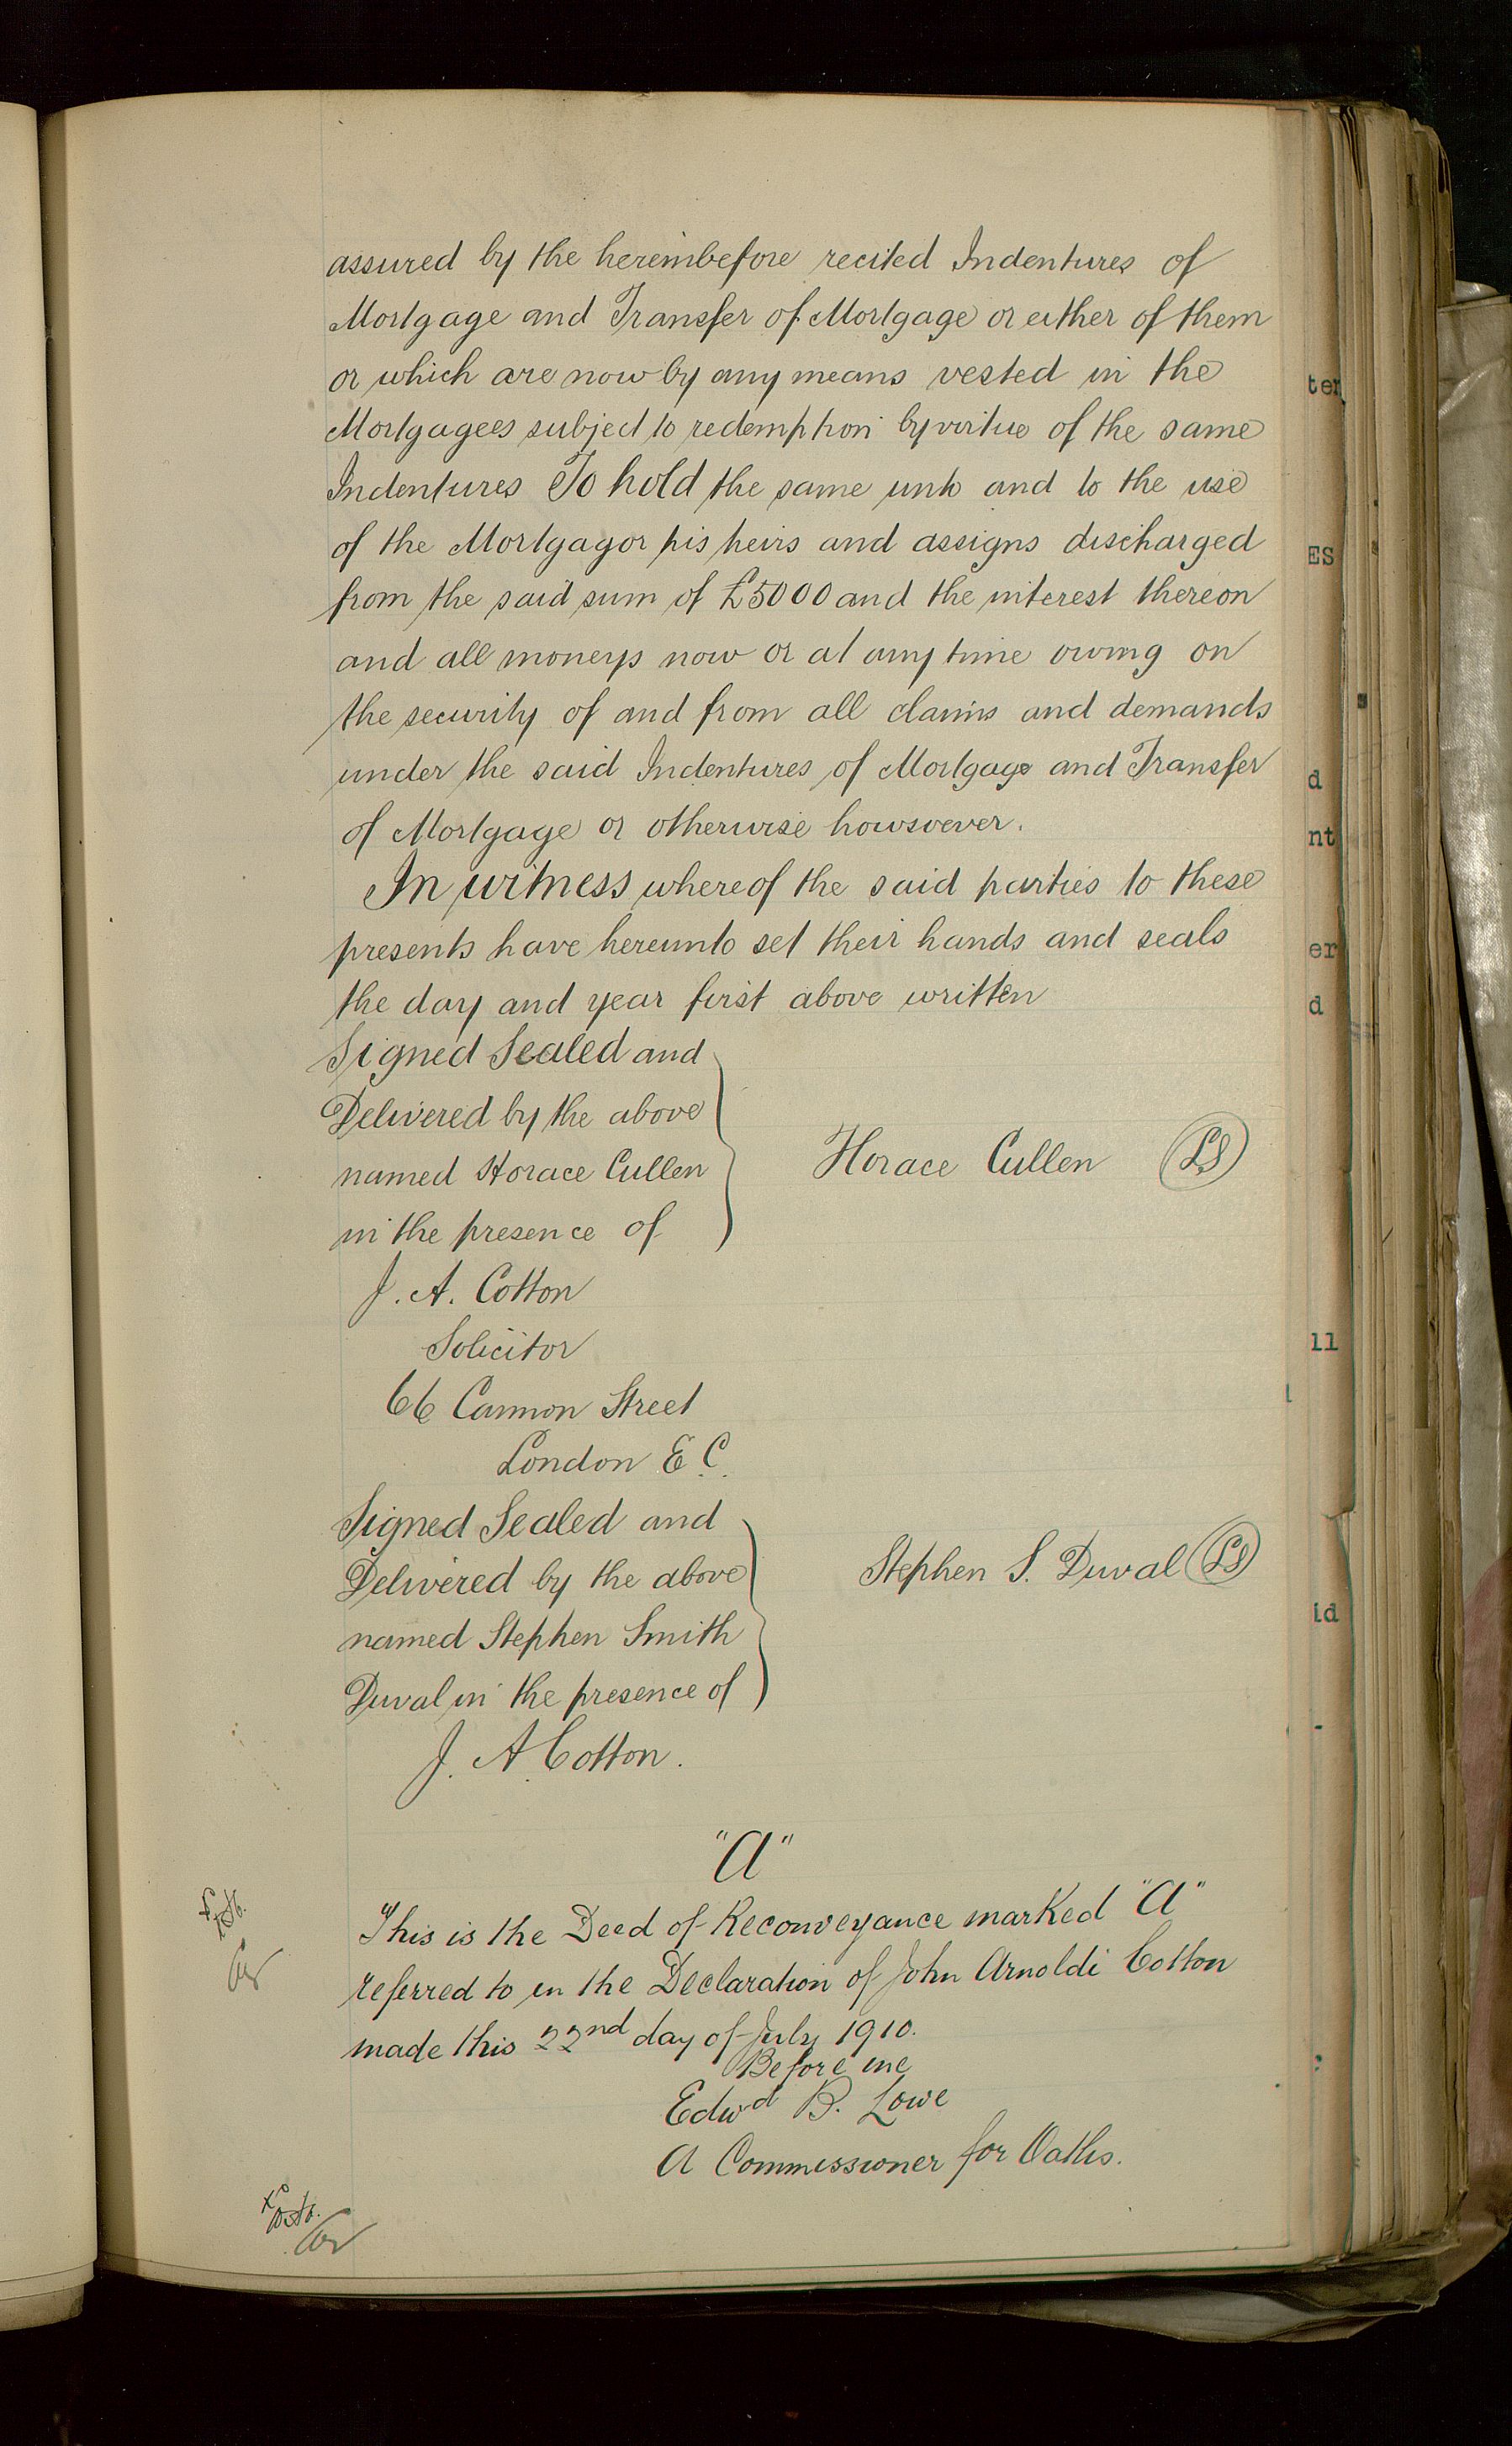 assured by the hereinbefore recited Indentures of
Mortgage and Transfer of Mortgage or either of them
or which are now by any means vested in the
Mortgagees subject to redemption by virtue of the same
Indentures To hold the same unto and to the use
of the Mortgagor his heirs and assigns discharged
from the said sum of £5000 and the interest thereon
and all moneys now or at any time owing on
the security of and from all claims and demands
under the said Indentures of Mortgage and Transfer
of Mortgage or otherwise howsoever.
In witness whereof the said parties to these
presents have hereunto set their hands and seals
the day and year first above written
Signed Sealed and
Delivered by the above
named Horace Cullen
in the presence of
Horace Cullen LS
J. A. Cotton
Solicitor
66 Cannon Street
London E.C.
Signed Sealed and
Delivered by the above
named Stephen Smith
Duval in the presence of
Stephen S. Duval LS
J. A. Cotton.
"A"
This is the Deed of Reconveyance marked "A"
referred to in the Declaration of John Arnoldi Cotton
made this 22nd day of July 1910.
Before me
Edwd B. Lowe
A Commissioner for Oaths.
ter
ES
d
nt
er
d
ll
id